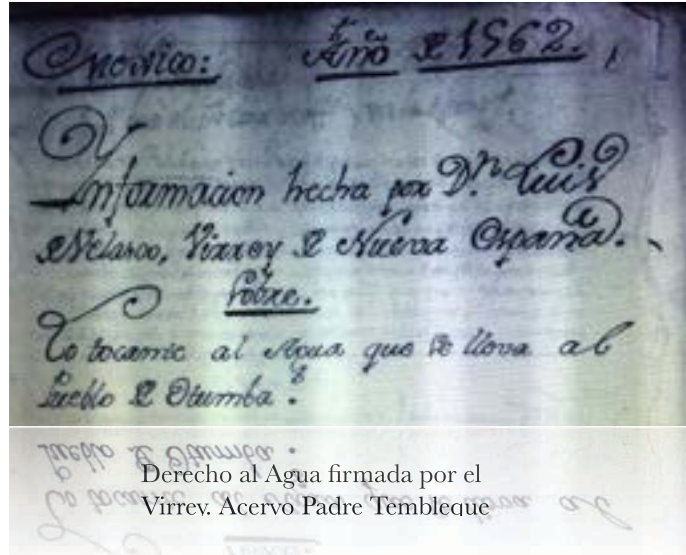 Mexico: Año de 1562.
Ynformacion hecha por Dn. Luis
de Velasco, Virrey de Nueva España.
sobre.
Lo tocante al Agua que se lleva al
Pueblo de Otumba.
Derecho al Agua firmada por el
Virrey. Acervo Padre Tembleque